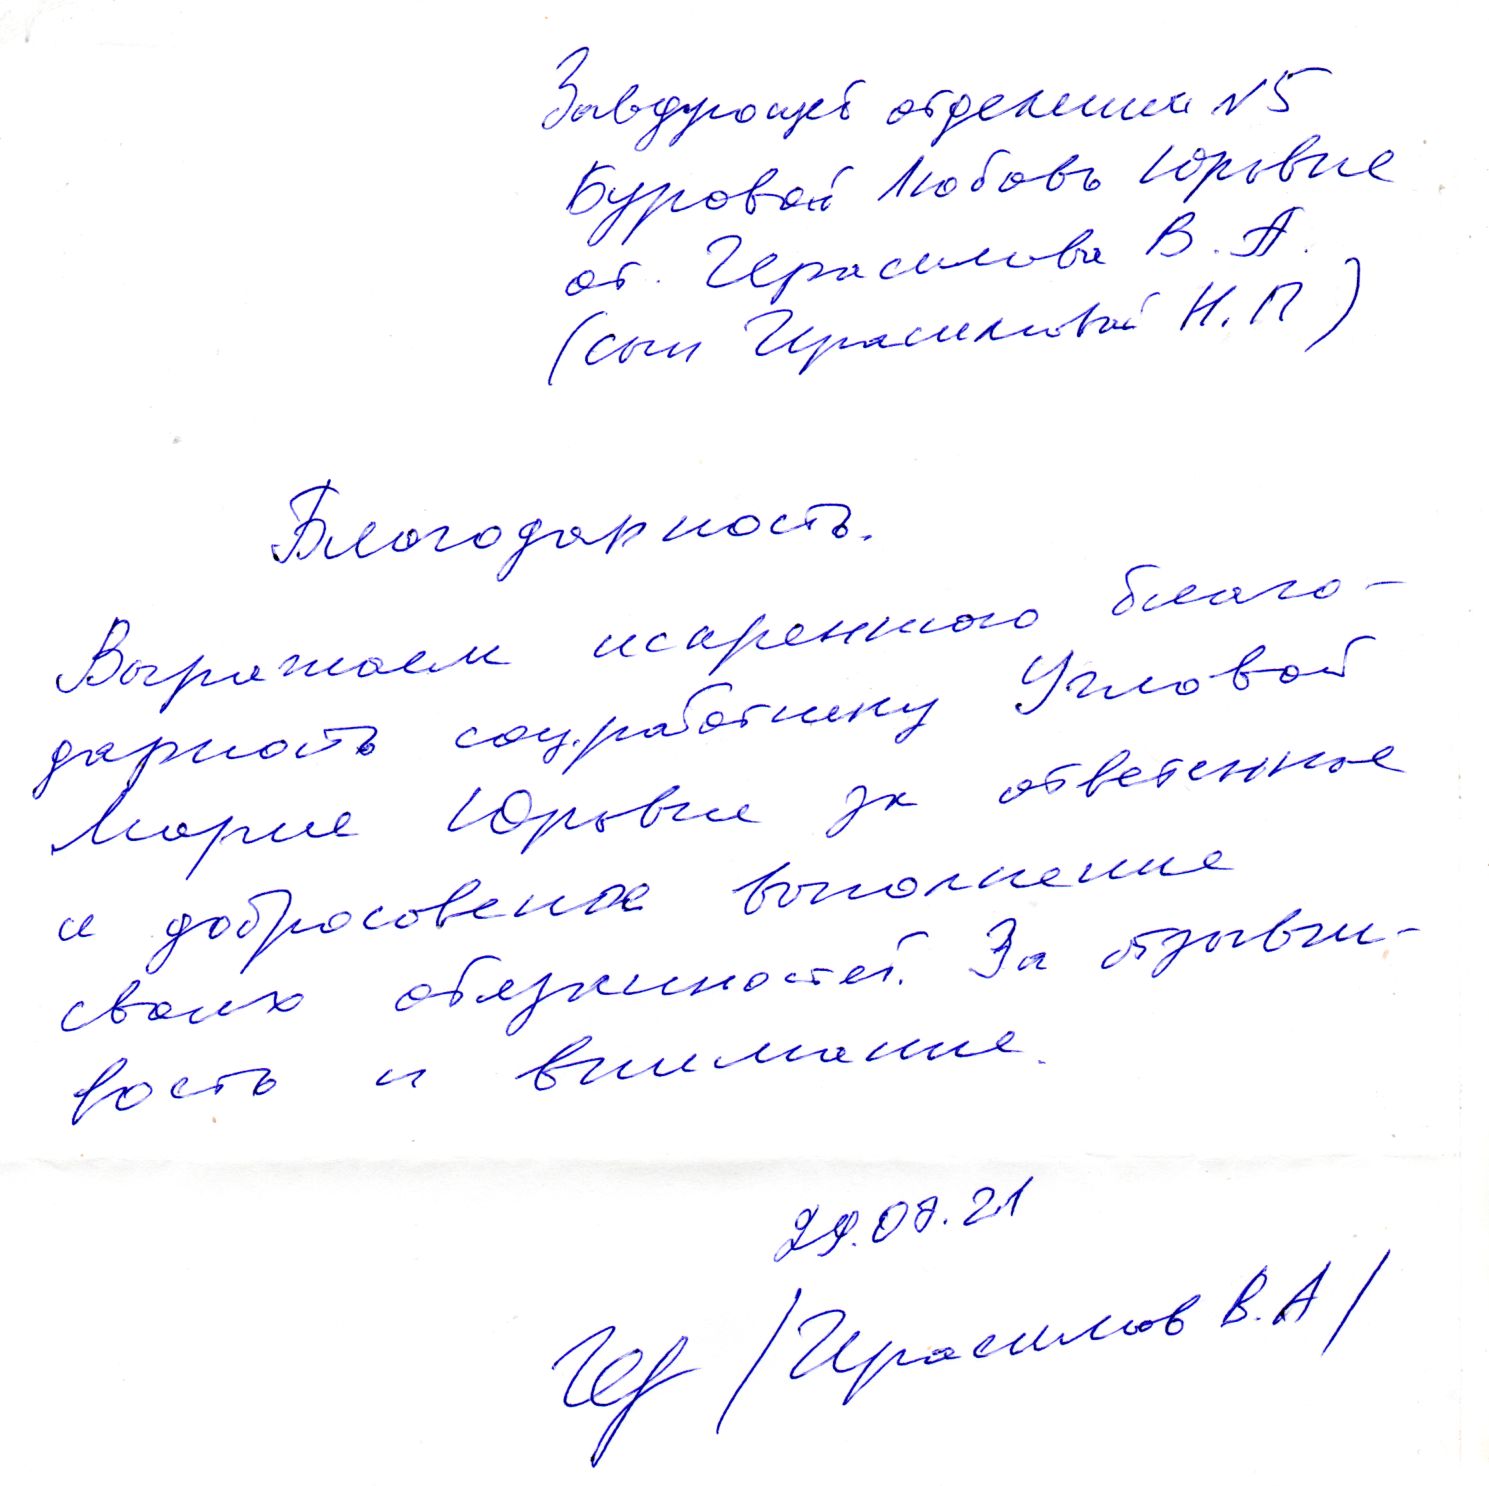 Заведующей отделением №5
Буровой Любовь Юрьевне
от. Герасимова В.А.
(сын Герасимовой Н.П)
Благодарность.
Выражаем искреннюю благо-
дарность соц.работнику Угловой
Марие Юрьевне за ответсенное
и добросовесное выполнение
своих обязанностей. За отзывчи-
вость и внимание.
29.07.21
Гер /Герасимов В.А/